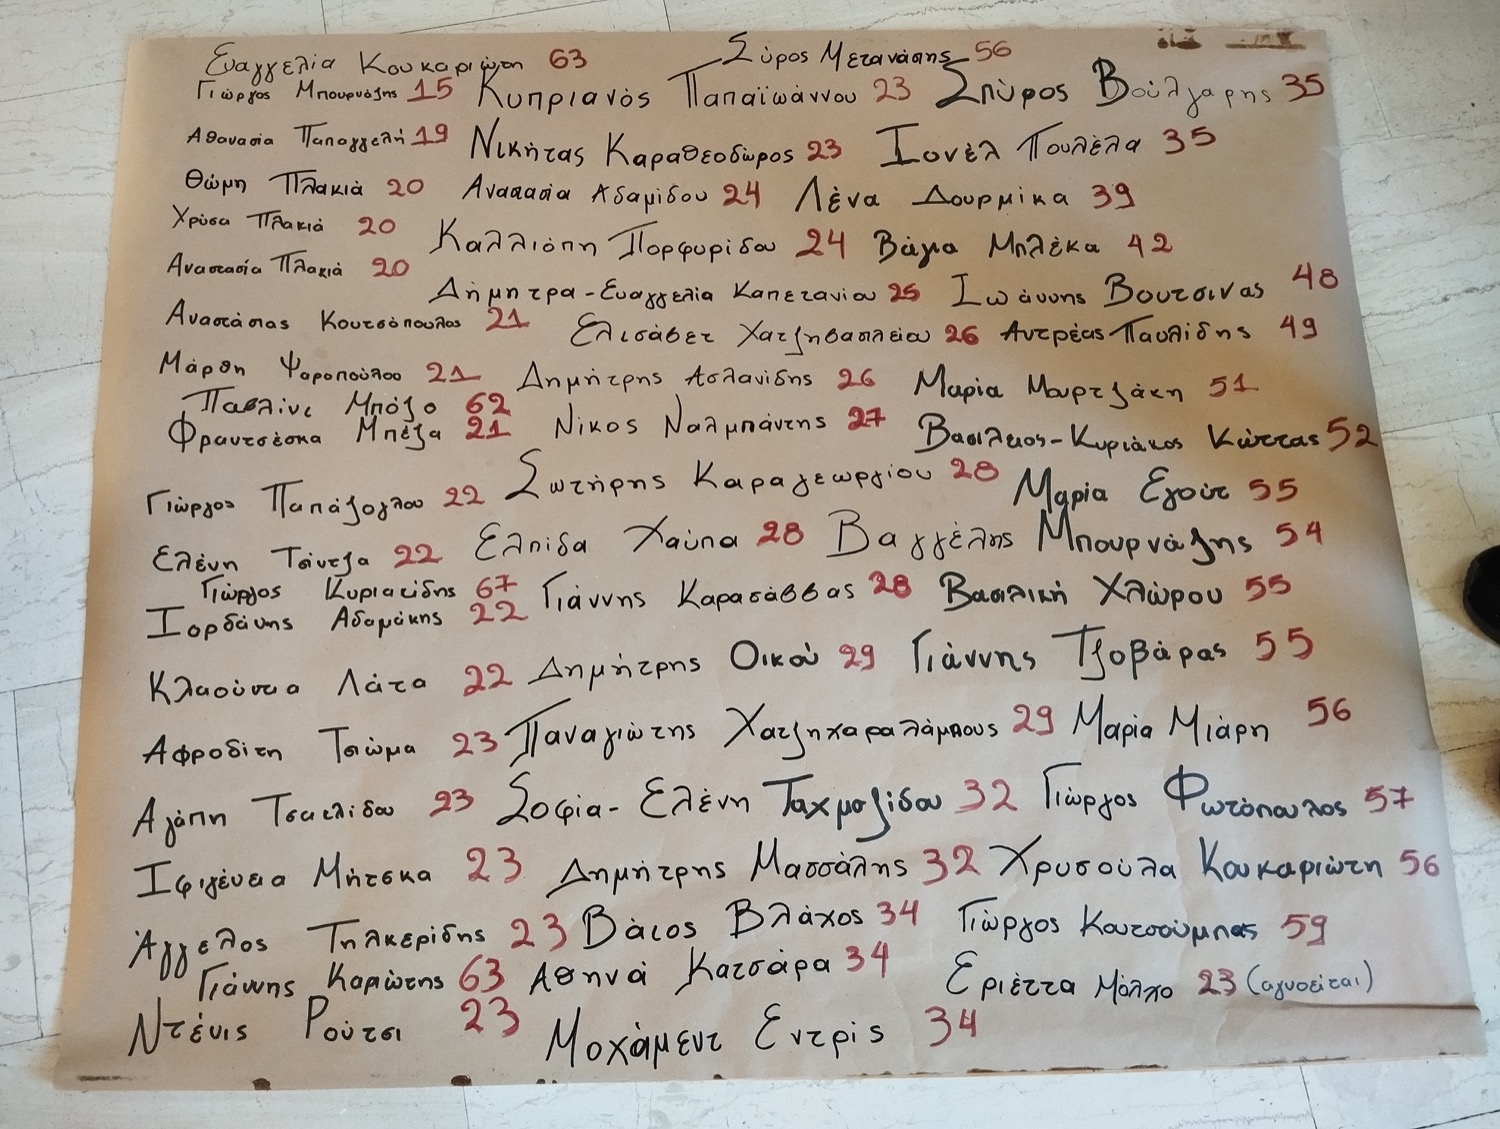 Ευαγγελία Κουκαριώτη 63 Σύρος Μετανάστης 56
Γιώργος Μπουρνάζης 15 Κυπριανός Παπαϊωάννου 23 Σπύρος Βούλγαρης 35
Αθανασία Παπαγγελή 19 Νικήτας Καραθεοδώρος 23 Ιονέλ Πουλέλα 35
Θώμη Πλακιά 20 Αναστασία Αδαμίδου 24 Λένα Δουρμίκα 39
Χρύσα Πλακιά 20 Καλλιόπη Πορφυρίδου 24 Βάγια Μπλέκα 42
Αναστασία Πλακιά 20 Δήμητρα-Ευαγγελία Καπετανίου 25 Ιωάννης Βουτσινας 48
Αναστάσιος Κουτσόπουλος 21 Ελισάβετ Χατζηβασιλείου 26 Αντρέας Παυλίδης 49
Μάρθη Ψαροπούλου 21 Δημήτρης Ασλανίδης 26 Μαρία Μουρτζάκη 51
Πασλίνι Μπόζο 62
Φραντσέσκα Μπέζα 21 Νίκος Ναλμπάντης 27 Βασίλειος-Κυριάκος Κώττας 52
Γιώργος Παπάζογλου 22 Σωτήρης Καραγεωργίου 28 Μαρία Εγούτ 55
Ελένη Τσίντζα 22 Ελπίδα Χαύπα 28 Βαγγέλης Μπουρνάζης 54
Γιώργος Κυριακίδης 67 Γιάννης Καρασάββας 28 Βασιλική Χλώρου 55
Ιορδάνης Αδαμάκης 22
Κλαούντια Λάτα 22 Δημήτρης Οικού 29 Γιάννης Τζοβάρας 55
Αφροδίτη Τσιώμα 23 Παναγιώτης Χατζηχαραλάμπους 29 Μαρία Μιάρη 56
Αγάπη Τσακλίδου 23 Σοφία-Ελένη Ταχμαζίδου 32 Γιώργος Φωτόπουλος 57
Ιφιγένεια Μήτσκα 23 Δημήτρης Μασσάλης 32 Χρυσούλα Κουκαριώτη 56
Άγγελος Τηλκερίδης 23 Βάιος Βλάχος 34 Γιώργος Κουτσούμπας 59
Γιάννης Καριώτης 63 Αθηνά Κατσάρα 34 Εριέττα Μόλχο 23 (αγνοείται)
Ντένις Ρούτσι 23 Μοχάμεντ Εντρίς 34